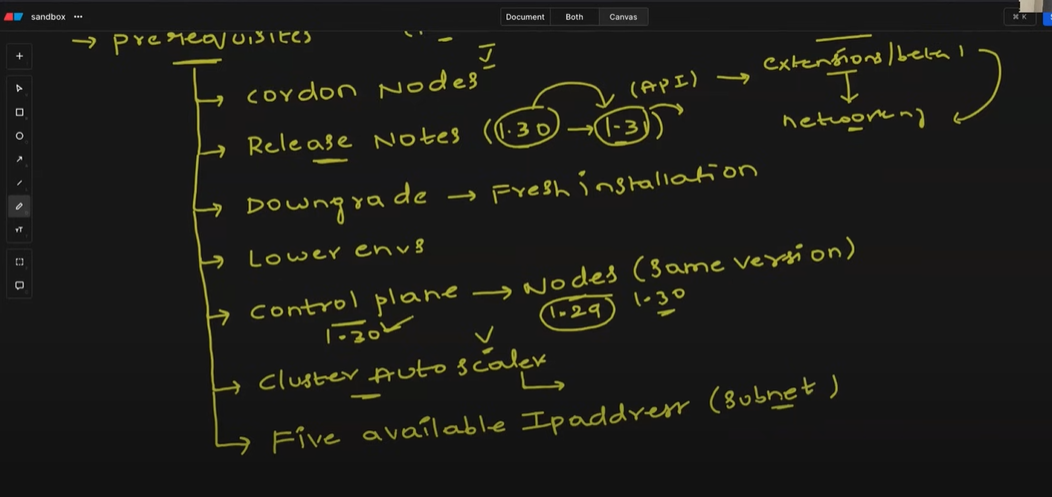 sandbox ...
Document Both Canvas
⌘ K
→ prerequisites
→ cordon Nodes
→ Release Notes (1.30 → 1-31) (API) → extensions/beta1
networking
→ Downgrade → Fresh installation
→ Lower envs
→ control plane → Nodes (same version)
1-30 ✓ 1-29 1-30
→ cluster Auto scaler
→ Five available Ipaddress (subnet)